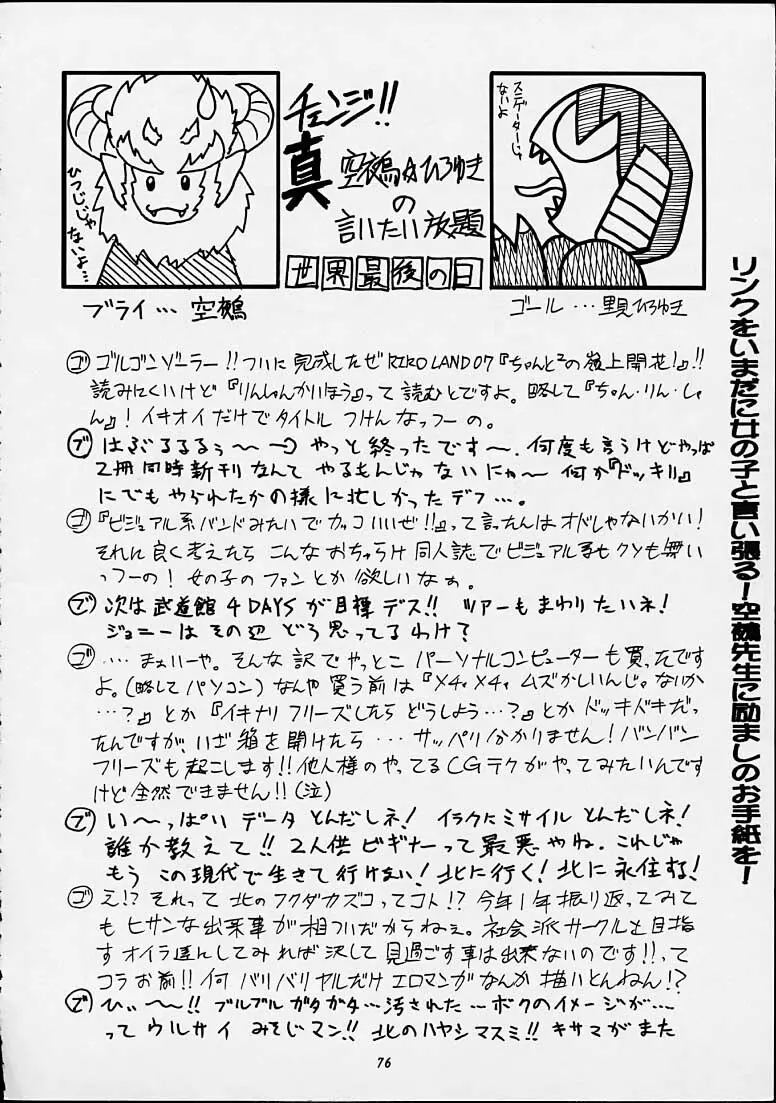 チェンジ!!
真
空鵺☆ひろゆき
の
言いたい放題
世界最後の日
ひつじじゃ
ないよ…
ステゴーターじゃ
ないよ
ブライ… 空鵺
ゴール …里見ひろゆき
ゴ ゴルゴンゾーラー!! ついに完成したぜ RIROLAND07『ちゃんと²の嶺上開花!』!!
読みにくいけど『りんしゃんかいほう』って読むとですよ。略して『ちゃん・りん・しゃ
ん』! イキオイだけでタイトルつけんなっつーの。
ブ はぶるるるぅ〜〜 やっと終ったです〜. 何度も言うけどやっぱ
2冊同時新刊なんて やるもんじゃないにゃ〜 何か『ドッキリ』
にでもやられたかの様に忙しかったデフ…。
ゴ 『ビジュアル系バンドみたいでカッコいいぜ!!』って言ったんはオドじゃないかい!
それに良く考えたら こんなおちゃらけ同人誌でビジュアル系もクソも無い
っつーの! 女の子のファンとか欲しいなぁ。
ブ 次は武道館4DAYSが目標デス!! ツアーもまわりたいネ!
ジョニーはその辺どう思ってるわけ?
ゴ …. まぁいーや。そんな訳でやっとこ パーソナルコンピューターも買ったです
よ。(略してパソコン) なんや買う前は『メチャメチャ ムズかしいんじゃないか
…?』とか『イキナリフリーズしたら どうしよう…?』とか ドッキドキだっ
たんですが、いざ箱を開けたら … サッパリ分かりません! バンバン
フリーズも起こします!! 他人様のやってるCGテクがやってみたいんです
けど全然できません!! (泣)
ブ い〜っぱい データとんだしネ! イラクにミサイル とんだしネ!
誰か教えて!! 2人供ビギナーって最悪やね. これじゃ
もう この現代で生きて行けない! 北に行く! 北に永住する!
ゴ え!? それって北のフクダカズコってコト!? 今年1年振り返ってみて
も ヒサンな出来事が相ついだからねぇ。社会派サークルを目指
すオイラ達んしてみれば決して見過ごす事は出来ないのです!! って
コラお前!! 何バリバリヤルだけエロマンガなんか 描いとんねん!?
ブ ひぃ〜〜!! ブルブルガタガタ… 汚された … ボクのイメージが….
って ウルサイ みそじマン!! 北のハヤシマスミ!! キサマがまた
リンクをいまだに女の子と言い張る!空鵺先生に励ましのお手紙を!
76